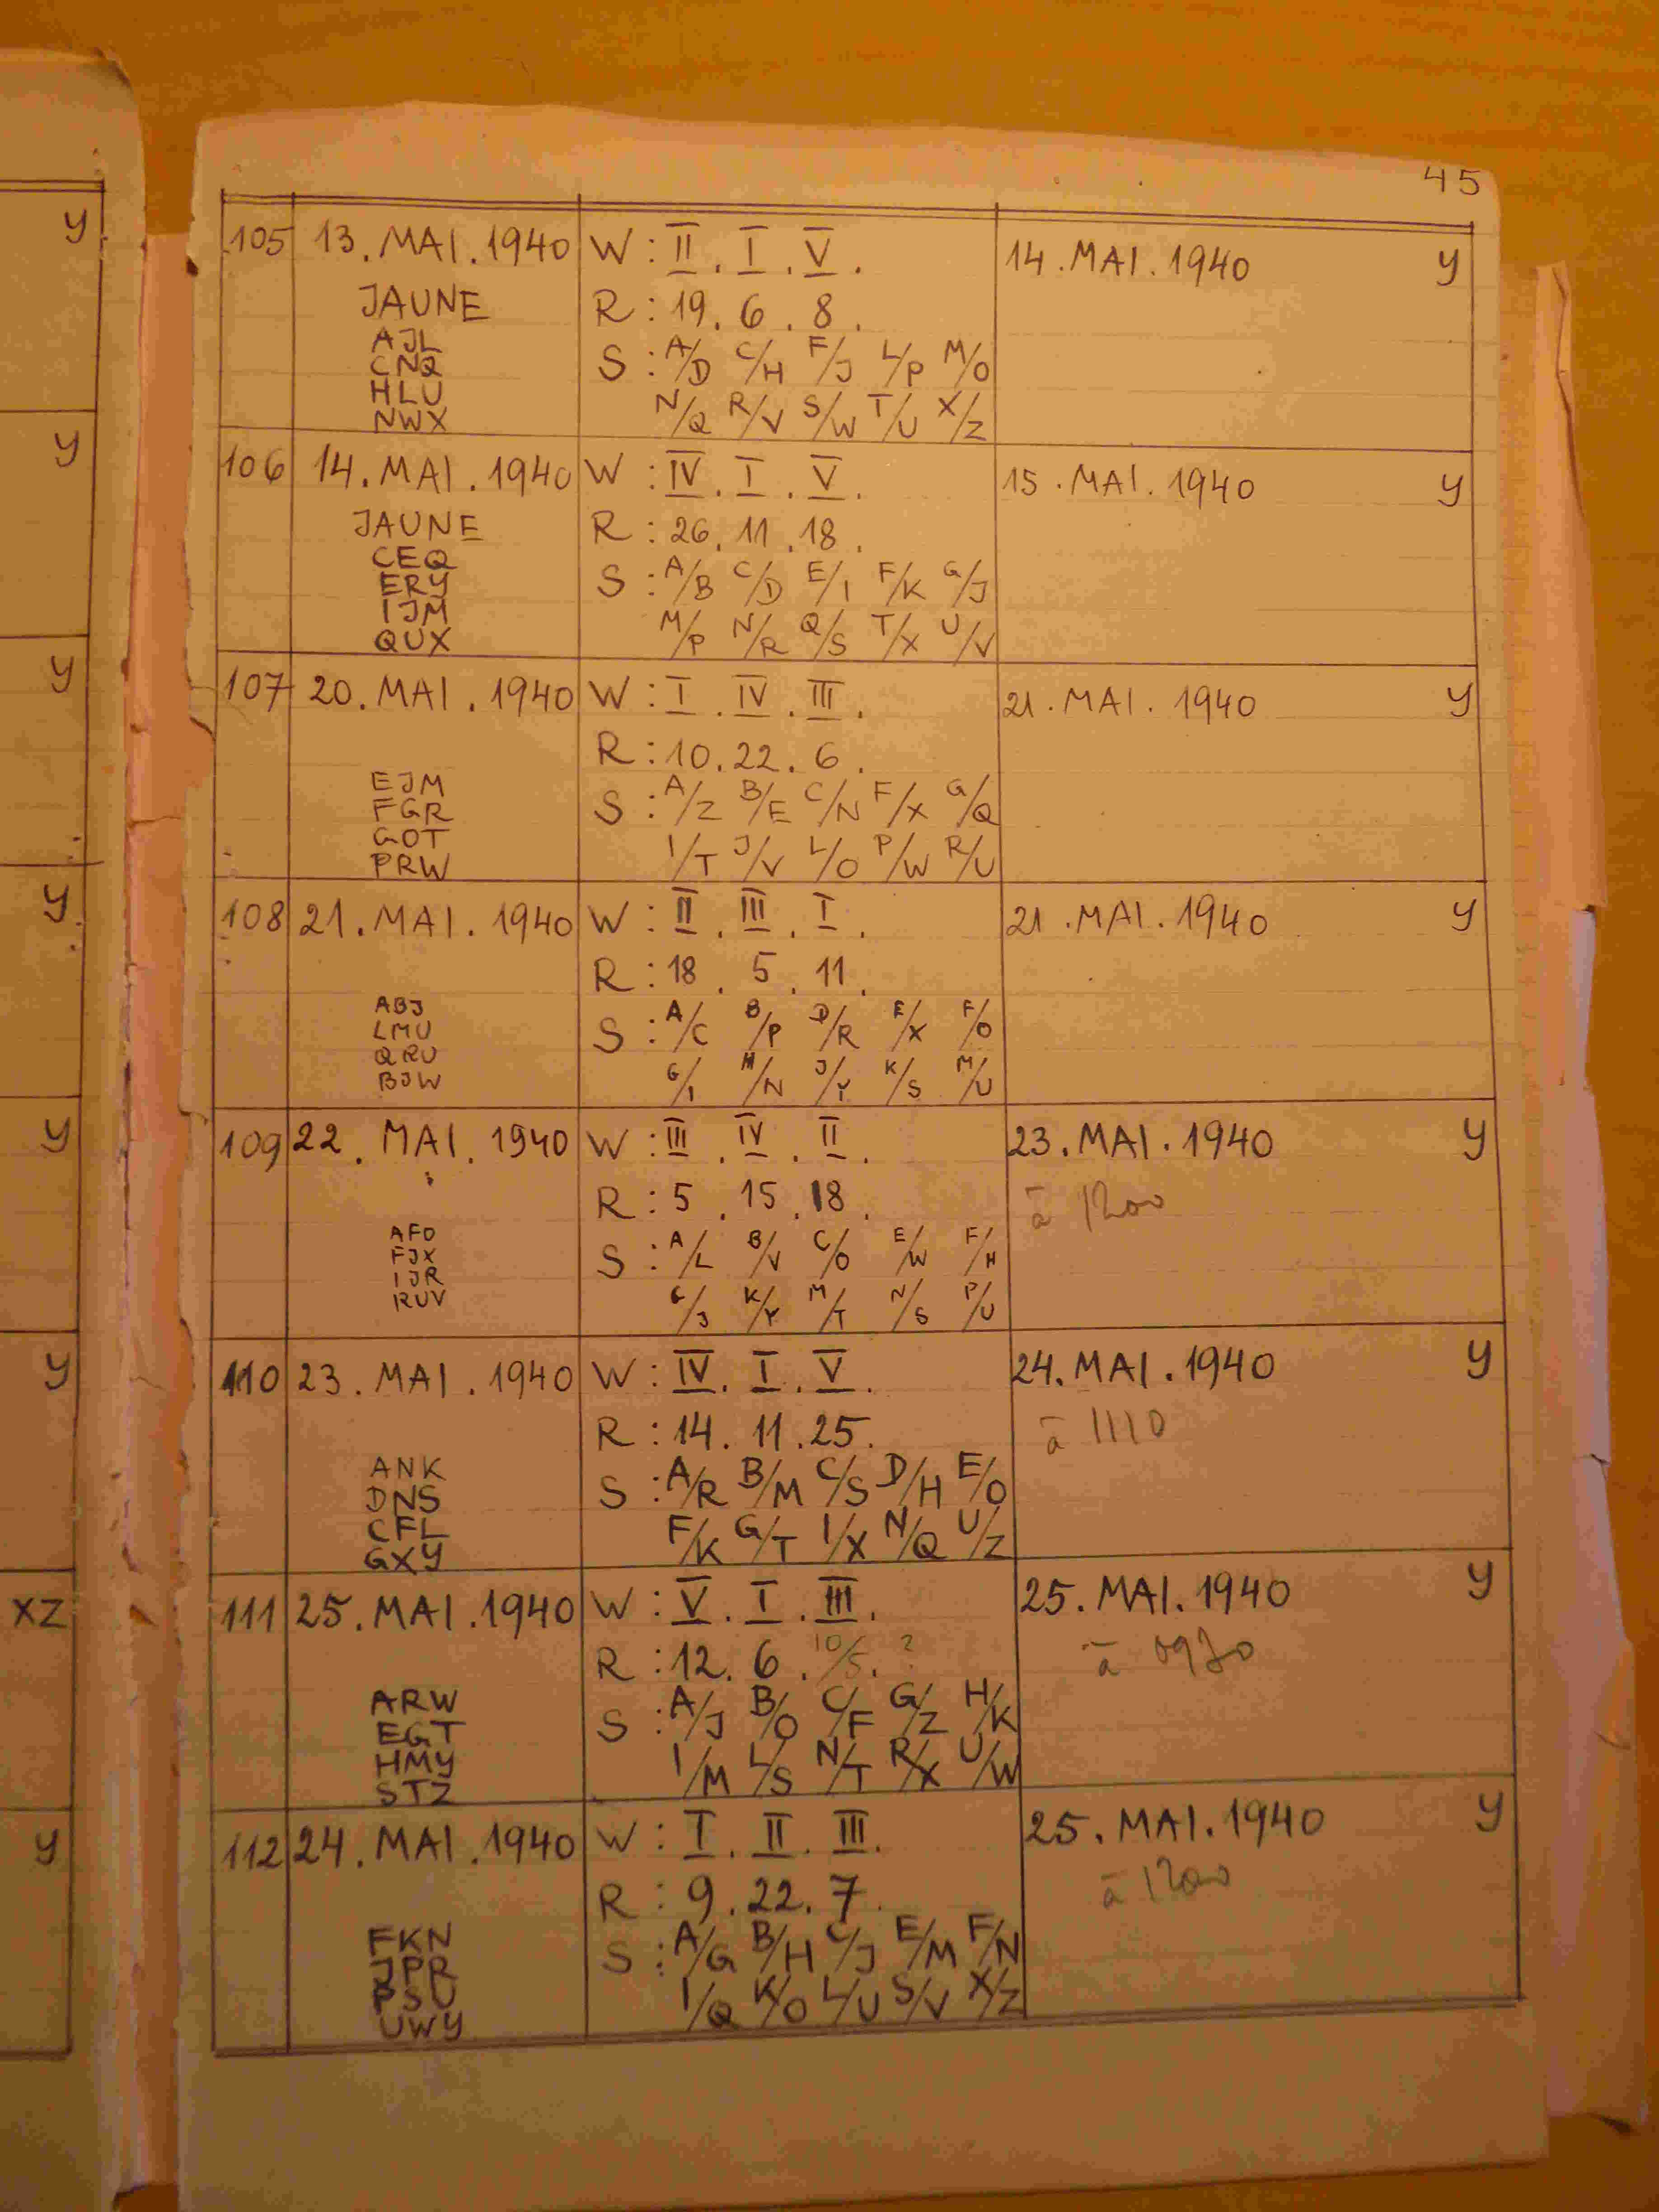 y
y
y
y
y
y
XZ
y
45
105 13. MAI. 1940 W : II . I . V . 14. MAI. 1940 y
JAUNE R : 19. 6 . 8 .
AJL
CNQ S : A/D C/H F/J L/P M/O
HLU
NWX N/Q R/V S/W T/U X/Z
106 14. MAI. 1940 W : IV . I . V . 15. MAI. 1940 y
JAUNE R : 26. 11 . 18 .
CEQ
ERY S : A/B C/D E/I F/K G/J
IJM
QUX M/P N/R Q/S T/X U/V
107 20. MAI. 1940 W : I . IV . III . 21. MAI. 1940 y
R : 10. 22. 6 .
EJM
FGR S : A/Z B/E C/N F/X G/Q
GOT
PRW I/T J/V L/O P/W R/U
108 21. MAI. 1940 W : II . III . I . 21. MAI. 1940 y
R : 18 . 5 . 11 .
ABJ
LMU S : A/C B/P D/R E/X F/O
QRU
BJW G/I H/N J/Y K/S M/U
109 22. MAI. 1940 W : III . IV . II . 23. MAI. 1940 y
R : 5 . 15 . 18 . à 1200
AFO
FJX S : A/L B/V C/O E/W F/H
IJR
RUV G/J K/Y M/T N/S P/U
110 23. MAI. 1940 W : IV . I . V . 24. MAI. 1940 y
R : 14. 11 . 25. à 1110
ANK
DNS S : A/R B/M C/S D/H E/O
CFL
GXY F/K G/T I/X N/Q U/Z
111 25. MAI. 1940 W : V . I . III . 25. MAI. 1940 y
R : 12. 6 . 10/5. ? à 0930
ARW
EGT S : A/J B/O C/F G/Z H/K
HMY
STZ I/M L/S N/T R/X U/W
112 24. MAI. 1940 W : I . II . III . 25. MAI. 1940 y
R : 9 . 22. 7 . à 1200
FKN
JPR S : A/G B/H C/J E/M F/N
PSU
UWY I/Q K/O L/U S/V X/Z